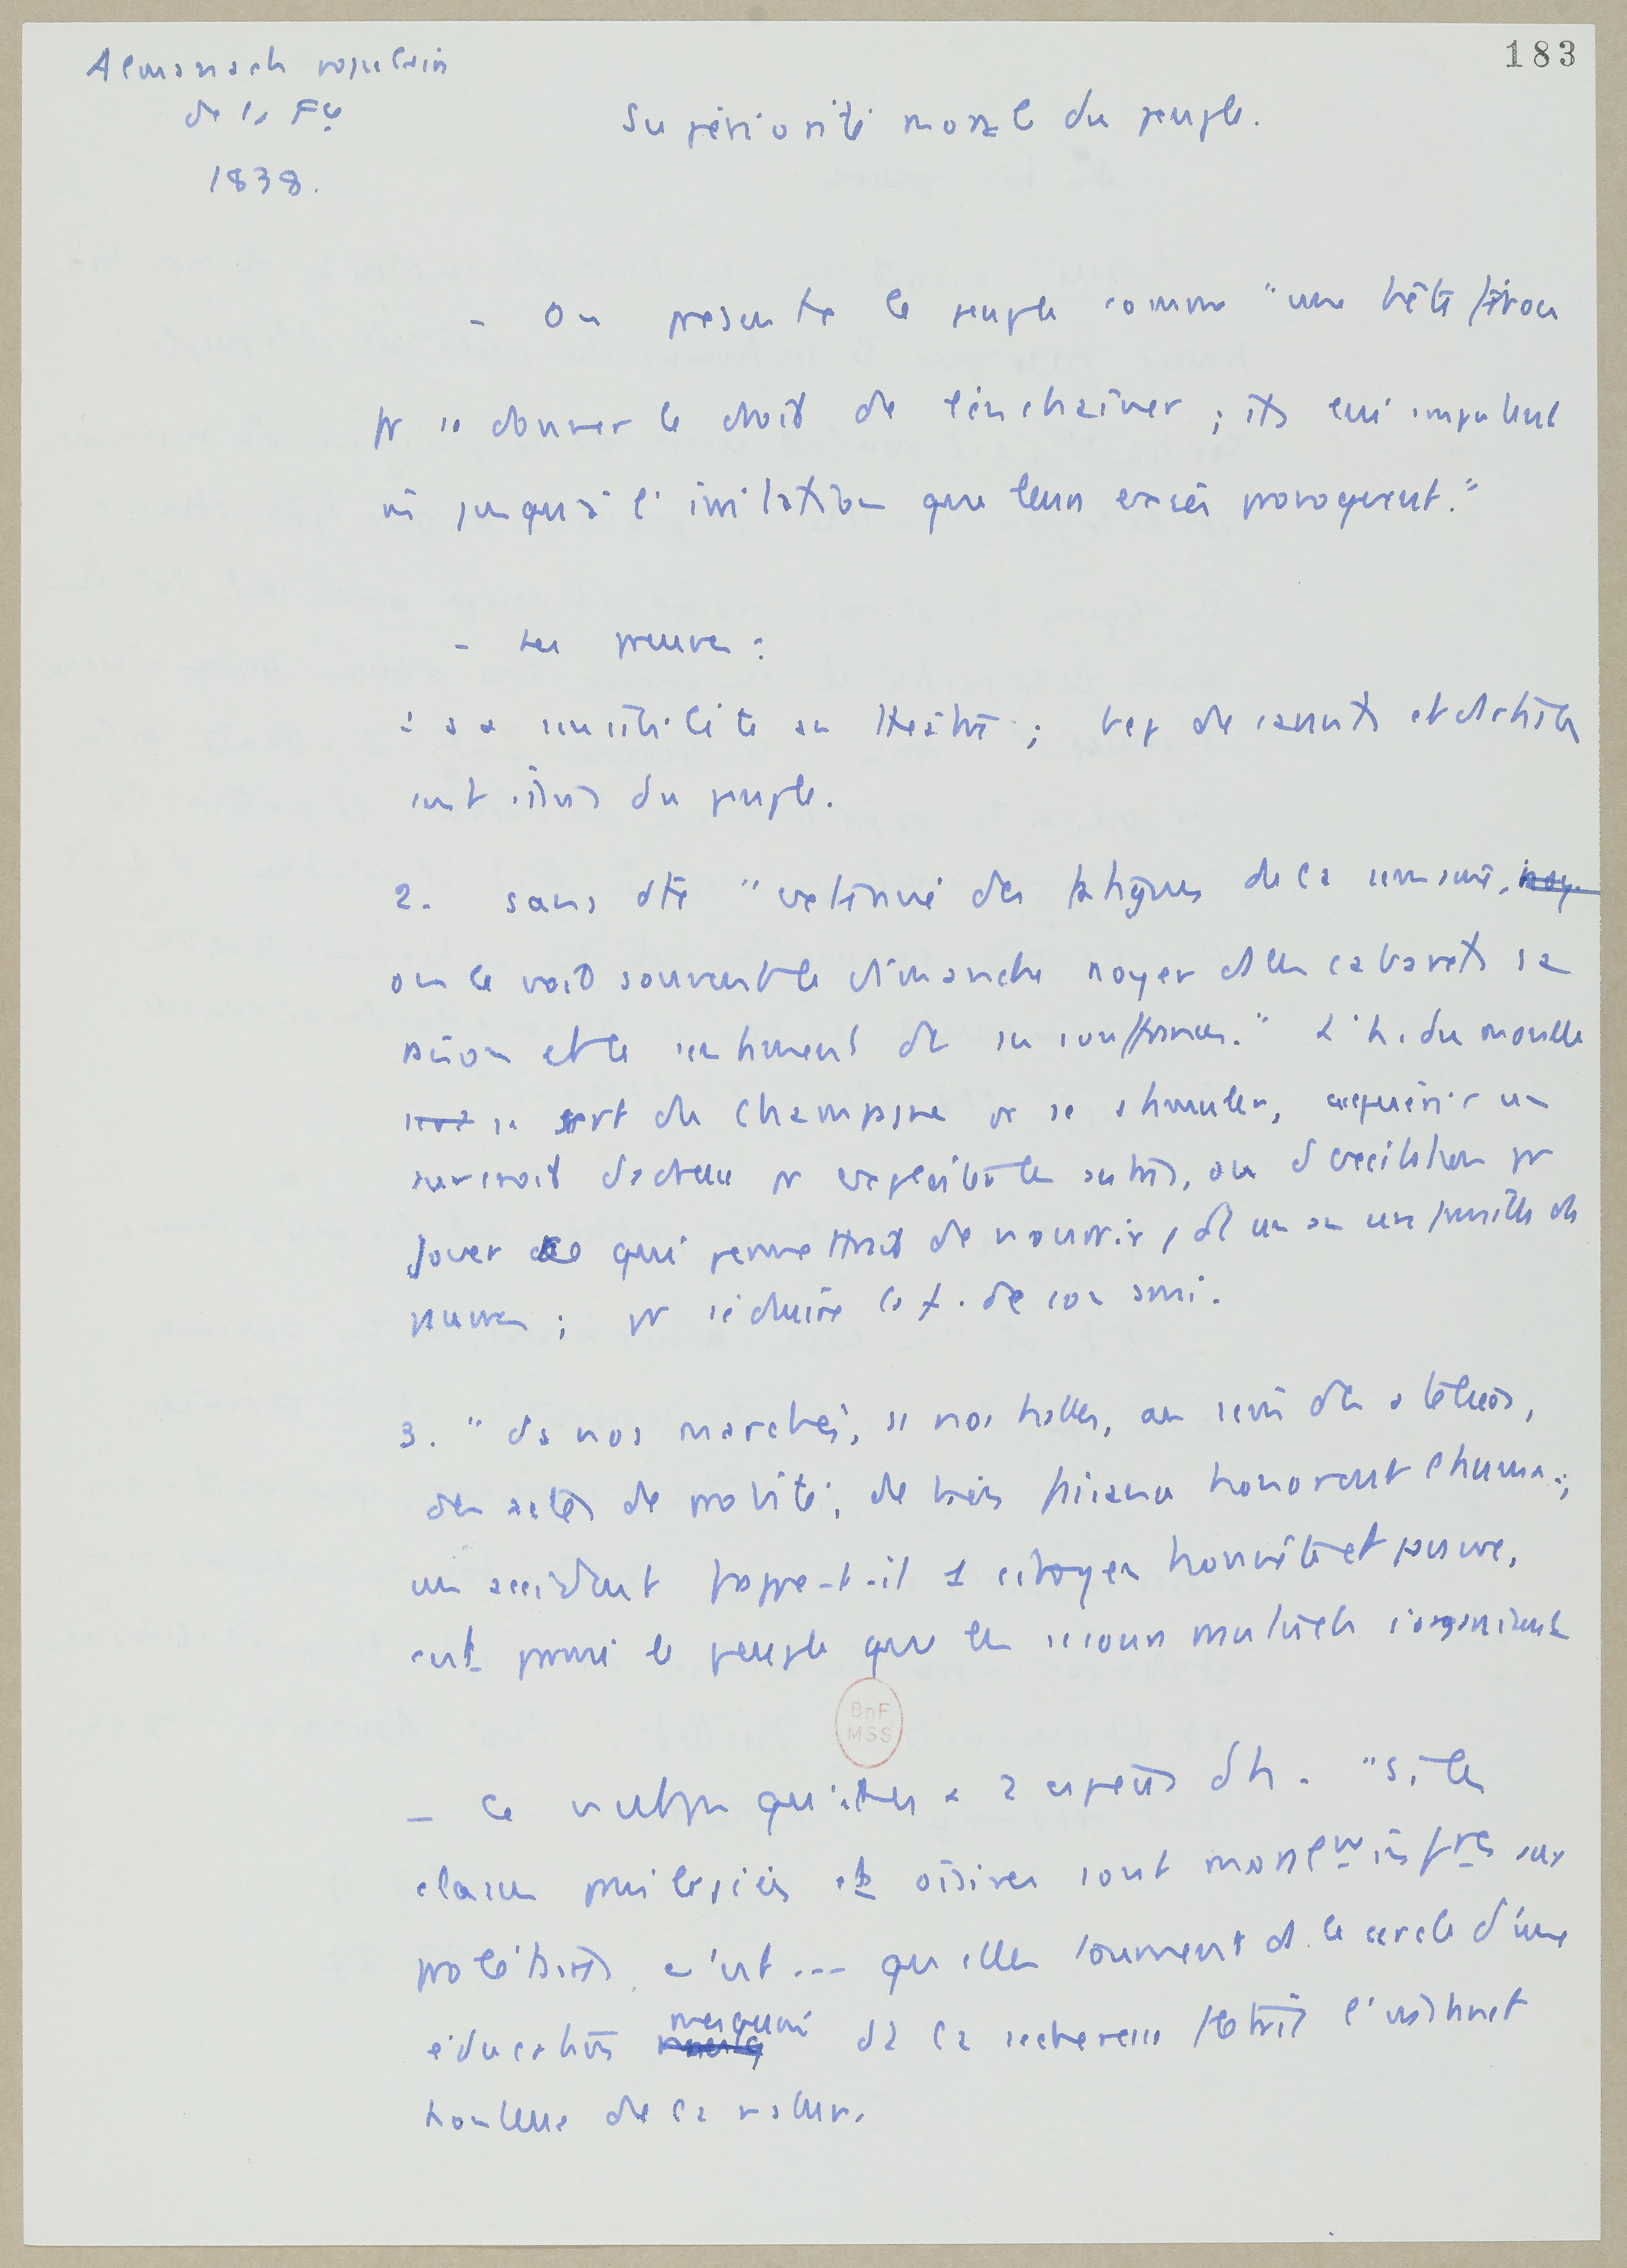 183
Almanach populaire
de la Fce
1838.
Supériorité morale du peuple.
- On présente le peuple comme "une bête féroce
pr se donner le droit de l'enchaîner ; ils lui imputent
jusqu'à l'irritation que leurs excès provoquent."
- Les preuves :
: sa sensibilité au théâtre ; bcp de savants et d'artistes
sont issus du peuple.
2. sans dte "exténué des fatigues de la semaine,
on le voit souvent le dimanche noyer ds les cabarets sa
raison et le sentiment de sa souffrance." L'h. du monde
se sert du champagne pr se stimuler, acquérir un
surcroît d'astuce pr exploiter les autres, ou d'excitation pr
jouer ce qui permettrait de nourrir pdt un an une famille de
pauvres ; pr séduire la f. de son ami.
3. "ds nos marchés, ds nos halles, au sein des ateliers,
des actes de probité, de bienfaisance honorent l'huma ;
un accident frappe-t-il 1 citoyen honnête et pauvre,
c'est parmi le peuple que les secours mutuels s'organisent
BnF
MSS
- Ce qui 2 d'h. "Si les
classes privilégiées et oisives sont moralemt inféres aux
prolétaires, c'est --- qu'elles tournent ds le cercle d'une
éducation mesquine ds la sécheresse flétrit l'instinct
de la nature.